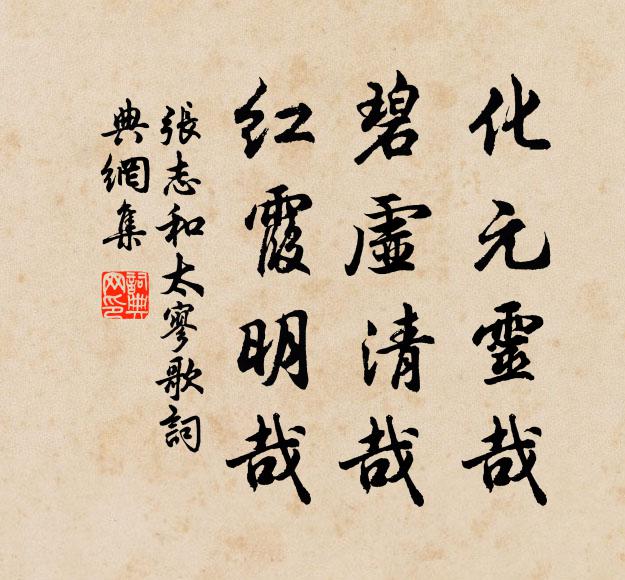 化元靈哉
碧虛清哉
紅霞明哉
張志和太寥歌詞
典網集
詞典
网印